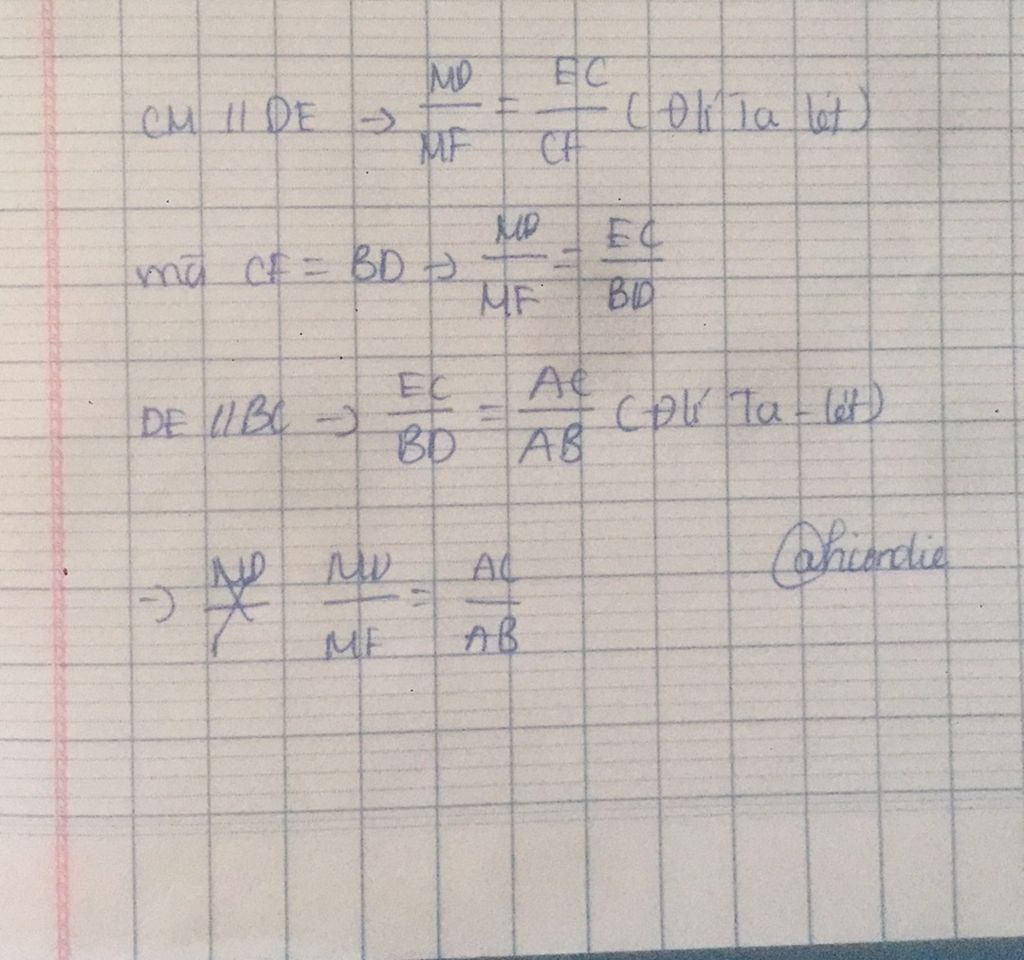 CM // DE → MD/MF = EC/CF (Đlí Ta lét)
mà CF = BD → MD/MF = EC/BD
DE // BC → EC/BD = AC/AB (Đlí Ta-lét)
→ MD/MF = AC/AB